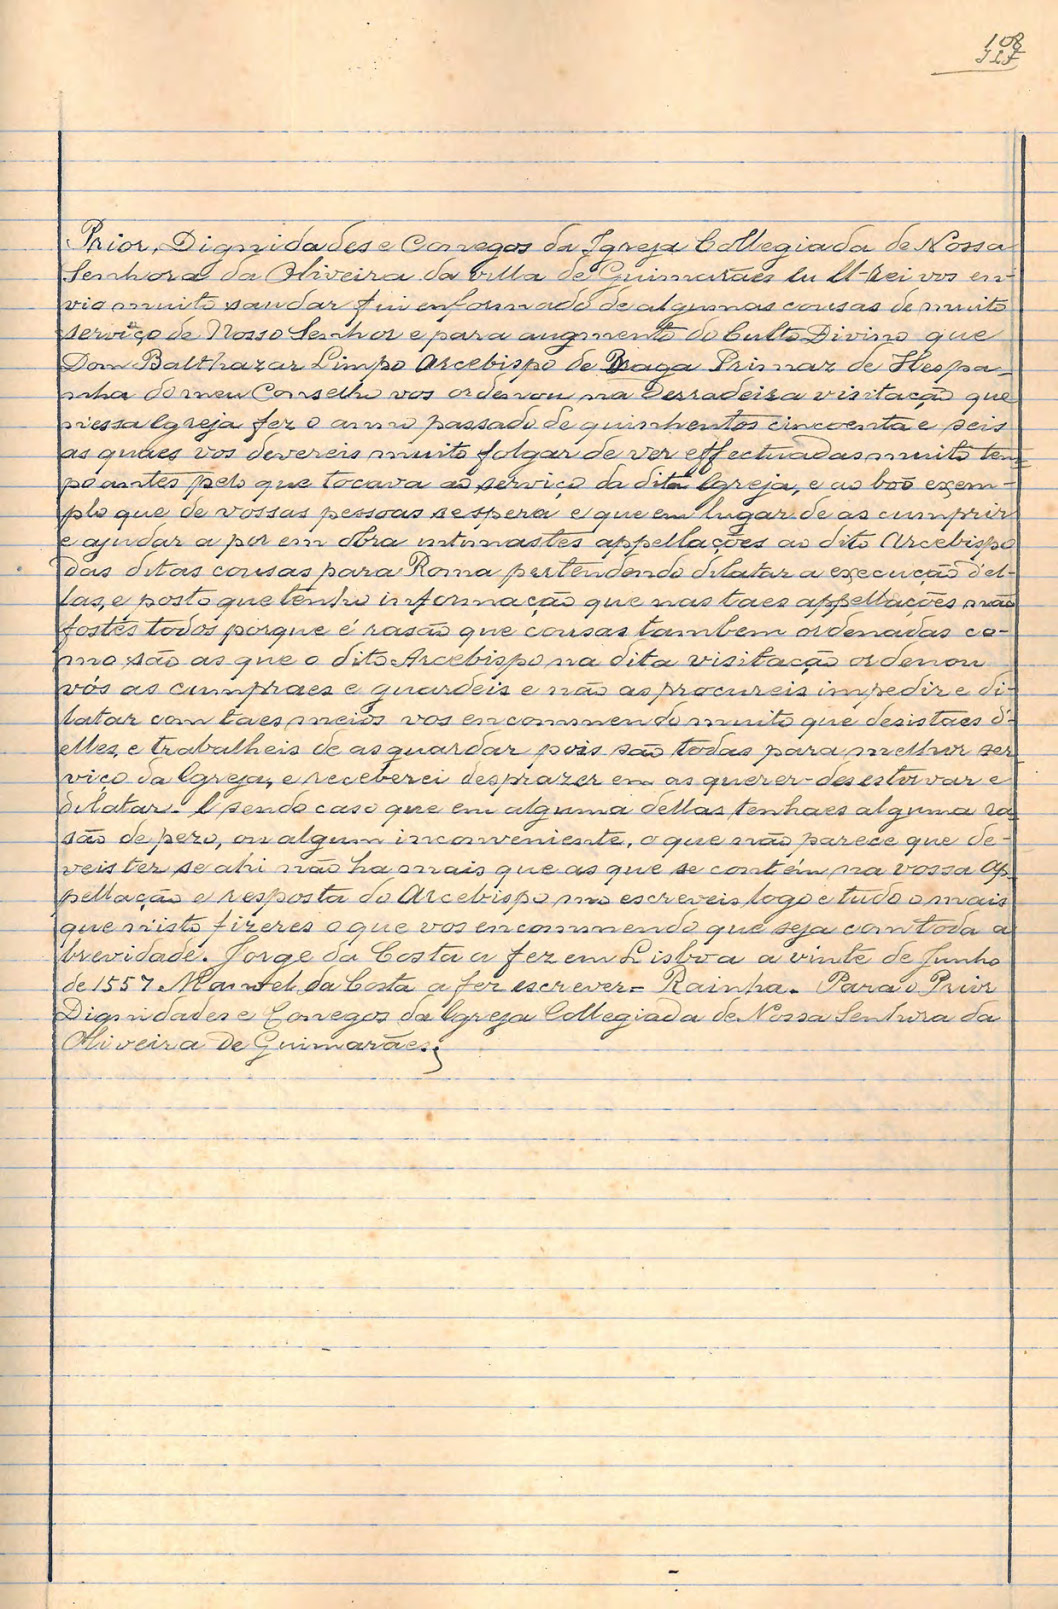 108
Prior, Dignidades e Conegos da Igreja Collegiada de Nossa
Senhora da Oliveira da villa de Guimarães Eu El-Rei vos en-
vio muito saudar fui enformado de algumas cousas de muito
serviço de Nosso Senhor e para augmento do Culto Divino que
Dom Balthazar Limpo Arcebispo de Braga Primaz de Hespa-
nha do meu Conselho vos ordenou na Derradeira visitação que
n'essa Igreja fez o anno passado de quinhentos cincoenta e seis
as quaes vos devereis muito folgar de ver effectuadas muito tem-
po antes pelo que tocava ao serviço da dita Igreja, e ao boõ exem-
plo que de vossas pessoas se espera e que em lugar de as cumprir
e ajudar a por em obra intimastes appellações ao dito Arcebispo
das ditas cousas para Roma pertendendo dilatar a execução d'el-
las, e posto que tenho informação que nas taes appellações não
fostes todos porque é rasão que cousas tambem ordenadas co-
mo são as que o dito Arcebispo na dita visitação ordenou
vós as cumpraes e guardeis e não as procureis impedir e di-
latar com taes meios vos encommendo muito que desistaes d'-
elles, e trabalheis de as guardar pois são todas para melhor ser
viço da Igreja, e receberei desprazer em as querer-des estorvar e
dilatar. E sendo caso que em alguma dellas tenhaes alguma ra-
são de pezo, ou algum inconveniente, o que não parece que de-
veis ter se ahi não ha mais que as que se contém na vossa ap-
pellação e resposta do Arcebispo mo escreveis logo e tudo o mais
que nisto fizeres o que vos encommendo que seja com toda a
brevidade. Jorge da Costa a fez em Lisboa a vinte de Junho
de 1557 Manoel da Costa a fez escrever = Rainha. Para o Prior
Dignidades e Conegos da Igreja Collegiada de Nossa Senhora da
Oliveira de Guimarães.